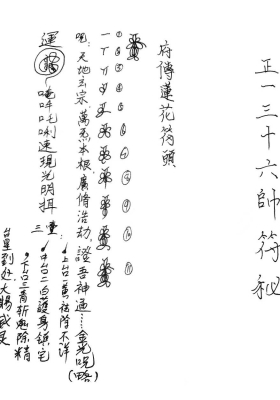 正一三十六師符秘
府傳蓮花符頭
①②③④⑤⑥⑦⑧⑨⑩⑪
吧、天地玄宗、萬炁本根、廣脩浩劫、證吾神通……金光咒(略)
運 唵吽吒唎速現光明拑
三台
上台一黃祛除不洋
中台二白護身鎮宅
下台三青斬鬼除精
台星到处大賜威灵